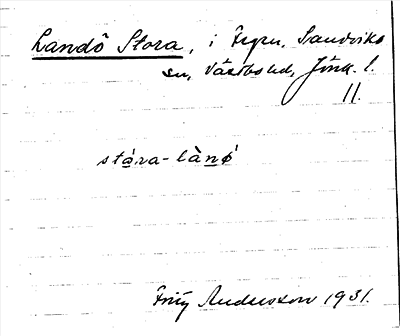 Landö Stora, i Fegen, Sandviks
sn, Västbo hd, Jönk. l.
11.
stára-lànǿ
Fritz Andersson 1931.